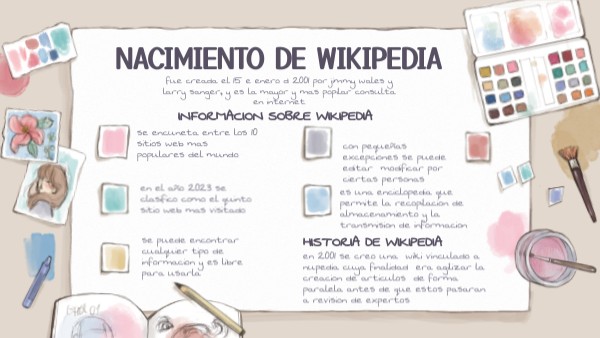 NACIMIENTO DE WIKIPEDIA
fue creada el 15 e enero d 2001 por jmmy wales y
larry sanger, y es la mayor y mas poplar consulta
en internet
INFORMACION SOBRE WIKIPEDIA
se encuneta entre los 10
sitios web mas
populares del mundo
en el año 2023 se
clasfico como el qunto
sitio web mas visitado
se puede encontrar
cualquier tipo de
informacion y es libre
para usarla
con pequeñas
excepciones se puede
editar modificar por
ciertas personas
es una enciclopedia que
permite la recoplacion de
almacenamiento y la
transmision de informacion
HISTORIA DE WIKIPEDIA
en 2001 se creo una wiki vinculado a
nupedia cuya finalidad era agilizar la
creacion de articulos de forma
paralela antes de que estos pasaran
a revision de expertos